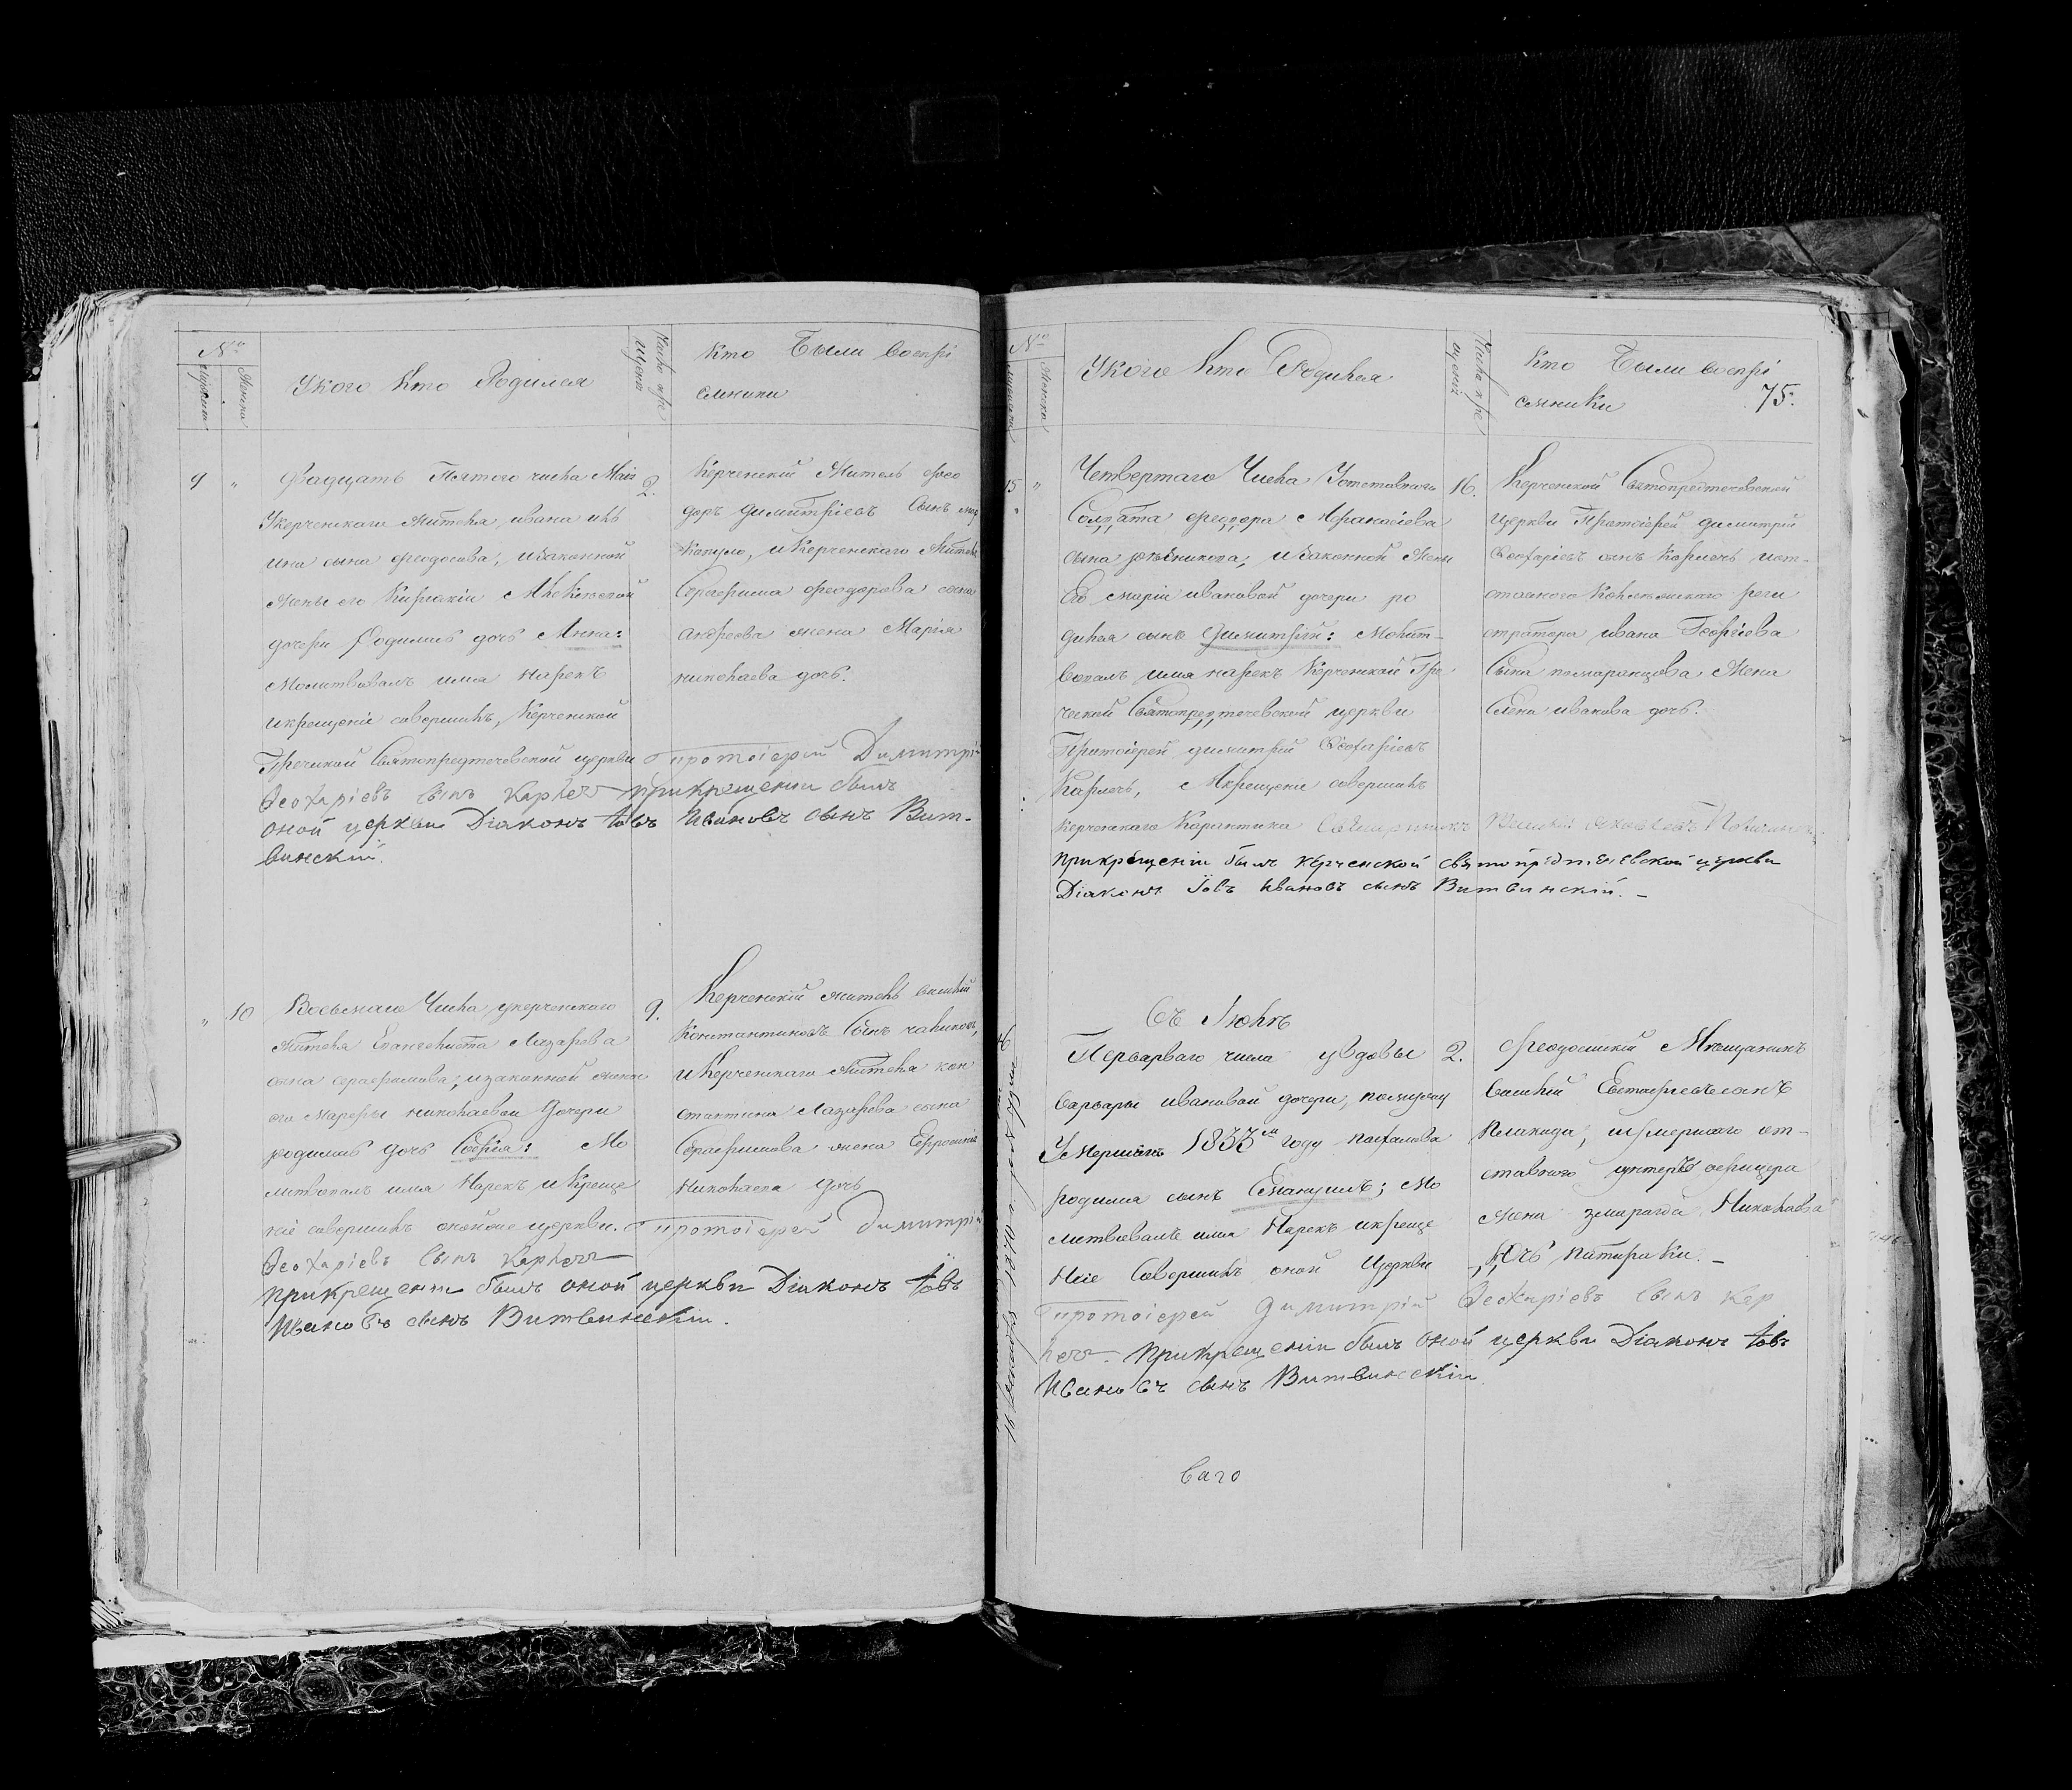 №
Мужска
Женска
Укого Кто Родился
Число кре
щенія
Кто Были Воспрі
емники
9 „ Двадцать Пятого числа Маія
Укерченскаго жителя, ивана
ина сына феодосова, изаконной
жены его Киріакіи
дочери Родилась дочь Анна:
Молитвовалъ имя нарекъ
икрещеніе совершилъ, Керченской
Греческой Святопредтечевской церкви протоіерей Димитрій
Ѳеохаріевъ сынъ Карпечъ прикрещеніи былъ
оной церкви Діаконъ Іовъ Ивановъ сынъ Вит-
винскій.
2.
Керченскій Житель Фео
доръ димитріевъ Сынъ
Кокуло, иКерченскаго Жителя
Серафима феодорова сына
андреева жена Марія
николаева дочь.
„ 10 Восьмаго Числа укерченскаго
жителя Евангелиста Лазарева
сына серафимова, изаконной жены
его Марфы николаевой дочери
родилась дочь Софія: Мо
литвовалъ имя Нарекъ икреще
ніе совершилъ онойже церкви. протоіерей Димитрій
Ѳеохаріевъ Сынъ Карпечъ
прикрещеніи былъ оной церкви Діаконъ Іовъ
Ивановъ сынъ Витвинскій.
9.
Керченскій житель василій
Константиновъ Сынъ чаликовъ,
иКерченскаго жителя кон
стантина Лазарева сына
Серафимова жена Ефросинія
Николаева дочь
№
Женска
Укого Кто Родился
Число кре
щеній
Кто Были воспрі
емники
75.
15 „ Четвертаго Числа Уотставнаго
Солдата феодора Афанасіева
сына рязникова, изаконной жены
Его маріи ивановой дочери ро
дился сынъ Димитрій: Молит-
вовалъ имя нарекъ Керченской Гре
ческой Святопредтечевской церкви
Протоіерей димитрій Ѳеохаріевъ
Карпечъ, Акрещеніе совершилъ
керченскаго Карантина Священникъ
прикрещеніи былъ керченской святопредтечевской церкви
Діаконъ Іовъ Ивановъ сынъ Витвинскій. –
16.
Керченской Святопредтечевской
Церкви Протоіерей димитрій
Ѳеохаріевъ сынъ Карпечъ иот-
ставнаго Коллежскаго реги
стратора ивана Георгіева
Сына померанцова Жена
Елена иванова дочь.
Съ Іюня
Перварваго числа увдовы
варвары ивановой дочери, помужу
Умершемъ 1833м году
родился сынъ Емануилъ; Мо
литвовалъ имя Нарекъ икреще
ніе Совершилъ оной Церкви
протоіерей Димитрій Ѳеохаріевъ сынъ Кар
печъ. прикрещеніи былъ оной церкви Діаконъ Іовъ
Ивановъ сынъ Витвинскій.
2.
Феодосійскій Мещанинъ
василій Евстафіевъ сынъ
Плакида, иумершаго от-
ставнаго унтеръ офицера
жена змарагда Николаева
дочь патираки. –
ваго